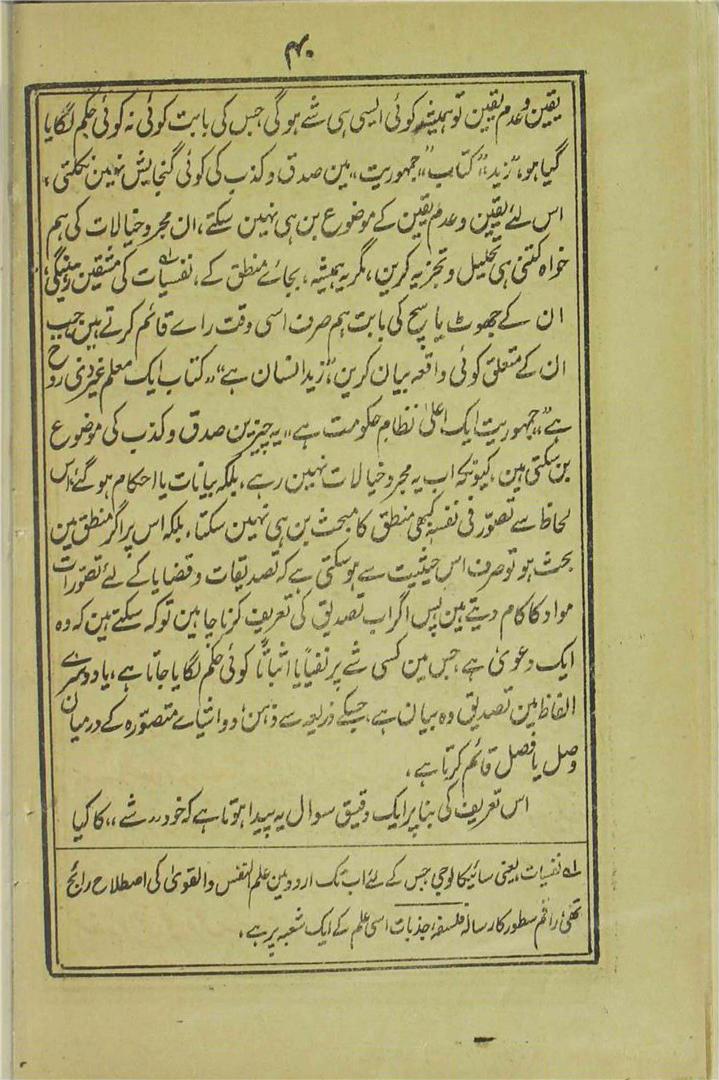 ۴۰
یقین وعدم یقین تو ہمیشہ کوئی ایسی ہی شے ہوگی جس کی بابت کوئی نہ کوئی حکم لگایا
گیا ہو، ”زید“، ”کتاب“، ”جمہوریت“، مین صدق وکذب کی کوئی گنجایش نہین نکلتی،
اس لئے یقین وعدم یقین کے موضوع بن ہی نہین سکتے، ان مجرد خیالات کی ہم
خواہ کتنی ہی تحلیل وتجزیہ کرین، مگر یہ ہمیشہ، بجائے منطق کے، نفسیات لہ کی مشقین رہینگی،
ان کے جھوٹ یا سچ کی بابت ہم صرف اسی وقت راے قائم کرتے ہین جب
ان کے متعلق کوئی واقعہ بیان کرین، ”زید انسان ہے“، ”کتاب ایک معلم غیر ذی روح
ہے“، ”جمہوریت ایک اعلیٰ نظام حکومت ہے“، یہ چیزین صدق وکذب کی موضوع
بن سکتی ہین، کیونکہ اب یہ مجرد خیالات نہین رہے، بلکہ بیانات یا احکام ہو گئے، اس
لحاظ سے تصوّر فی نفسہٖ کبھی منطق کا مبحث بن ہی نہین سکتا، بلکہ اس پر اگر منطق مین
بحث ہو تو صرف اس حیثیت سے ہو سکتی ہے کہ تصدیقات وقضایا کے لئے تصورات
مواد کا کام دیتے ہین پس اگر اب تصدیق کی تعریف کرنا چاہین تو کہ سکتے ہین کہ وہ
ایک دعویٰ ہے جس مین کسی شے پر نفیاً یا اثباتاً کوئی حکم لگایا جاتا ہے، یا دوسرے
الفاظ مین تصدیق وہ بیان ہے، جسکے ذریعہ سے ذہن، دو اشیاے متصوّرہ کے درمیان
وصل یا فصل قائم کرتا ہے،
اس تعریف کی بنا پر ایک دقیق سوال یہ پیدا ہوتا ہے کہ خود ”شے“، کا کیا
لہ نفسیات، یعنی سائیکالوجی جس کے لئے اب تک اردو مین علم النفس والقویٰ کی اصطلاح رائج
تھی، راقم سطور کا رسالہ فلسفۂ جذبات اسی علم کے ایک شعبہ پر ہے،